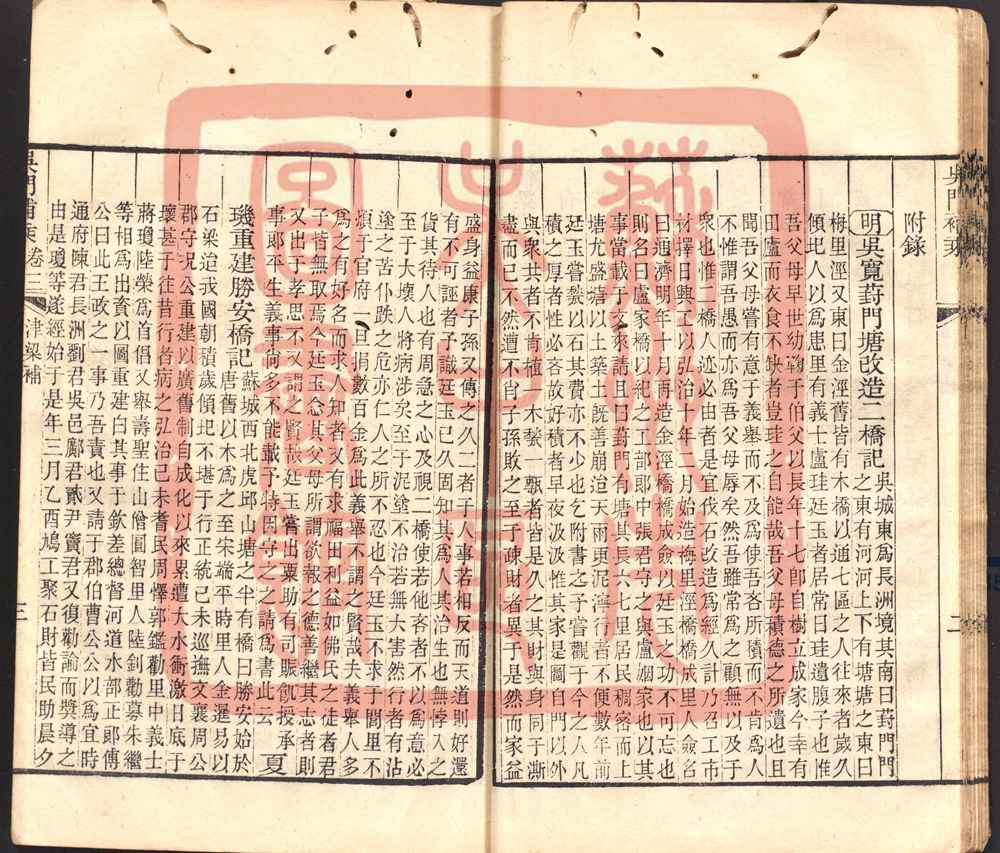 附錄
明吳寬葑門塘改造二橋記 吳城東爲長洲境其南曰葑門
之東有河河上下有塘塘之東曰
梅里涇又東曰金涇舊皆有木橋以通七區之人往來者歲久
傾圯人以爲患里有義士盧珪廷玉者居常日珪遺腹子也惟
吾父母早世幼鞠于伯父以長年十七卽自樹立成家今幸有
田廬而衣食不缺者豈珪之自能哉吾父母積德之所遺也且
聞吾父母嘗有意于義舉而不及爲使吾吝所積而不肯爲人
不惟謂吾愚而亦爲吾父母辱矣然吾雖常爲之顧無以及于
衆也惟二橋人迹必由者是宜伐石改造爲經久計乃召工市
材擇日興工以弘治十年二月始造梅里涇橋橋成里人僉名
曰通濟明年十月再造金涇橋橋成僉以廷玉之功不可忘也
則名曰盧家橋以紀之工部郎中張君守之與盧姻家也以其
事當載于文來請且曰葑門有塘其長六七里居民稠密而上
塘尤盛塘以土築土旣善崩迨天雨更泥濘行者不便數年前
廷玉嘗甃以石其費亦不少也乞附書之予嘗觀于今之人凡
積之厚者性必吝故好積者早夜汲汲惟其家是圖自門以外
與衆共者不肯植一木甃一甎者皆是久之其財與身同于澌
盡而已不然遭不肖子孫敗之至于疎財者異于是然而家益
盛身益康子孫又傳之久二者于人事若相反而天道則好還
有不可誣者予識廷玉已久固知其爲人其治生也無悖入之
貨其待人也有周急之心及視二橋使若他人不以爲意必
至于大壞人將病涉矣至于泥塗不治若無大害然行者有沾
塗之苦仆跌之危亦仁人之所不忍也今廷玉不求于閭里不
煩于官府一旦捐數百金爲此義舉不謂之賢哉夫義舉人多
爲之有好名而求人知者又有求福田利益如佛氏之徒者君
子皆無取焉今廷玉念其父母所謂欲報之德善繼其志者則
又出于孝思不又謂之賢哉廷玉嘗出粟助有司賑飢授承
事郎平生義事尚多不能載予特因守之之請爲書此云 夏
璣重建勝安橋記 蘇城西北虎邱山塘之半有橋曰勝安始於
唐舊以木爲之至宋端平時里人金暹易以
石梁迨我國朝積歲傾圯不堪于行正統己未巡撫文襄周公
郡守况公重建以廣舊制自成化以來累遭大水衝激日底于
壞甚于往昔行者病之弘治己未耆民周懌郭鑑勸里中義士
蔣瓊陸榮爲首倡又舉壽聖住山僧圓智里人陸釗勸募朱繼
等相爲出資以圖重建白其事于欽差總督河道水部正郞傅
公曰此王政之一事乃吾責也又請于郡伯曹公公以爲宜時
通府陳君長洲劉君吳邑鄺君貳尹竇君又復勸諭而獎導之
由是瓊等遂經始于是年三月乙酉鳩工聚石財皆民助晨夕
吳門補乘 卷二 津梁補
三
二